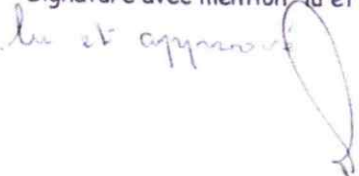 Signature avec mention lu et
lu et approuvé